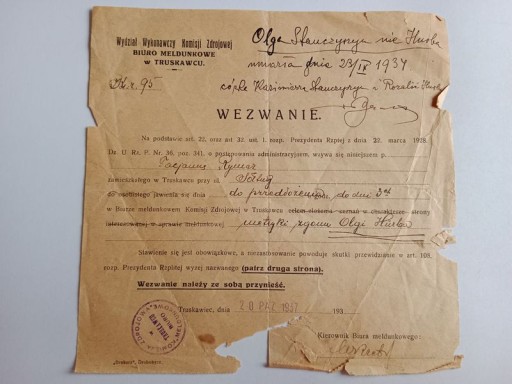 Wydział Wykonawczy Komisji Zdrojowej
BIURO MELDUNKOWE
W TRUSKAWCU.
Olga Stawczynya nie Husba
umarła dnie 23/IX 1937
córka Kazimierza Stawczynya i Rozalii
WEZWANIE.
Na podstawie art. 22, oraz art 32. ust 1. rozp. Prezydenta Rzplej z dnia 22. marca 1928.
Dz. U. Rz. P. Nr. 36, poz. 341. o postępowaniu administracyjnem, wzywa się niniejszem p.
zamieszkałego w Truskawcu przy ul.
do osobistego jawienia się dnia do przedłożenia do dni 3ch
w Biurze meldunkowem Komisji Zdrojowej w Truskawcu celem złożenia zeznań w charakterze strony
interesowanej w sprawie meldunkowej metryki zgonu Olgi Husba
Stawienie się jest obowiązkowe, a niezastosowanie powoduje skutki przewidziane w art. 109.
rozp. Prezydenta Rzplitej wyżej nazwanego (patrz druga strona).
Wezwanie należy ze sobą przynieść.
Truskawiec, dnia 28 PAŹ. 1937 193
Kierownik Biura meldunkowego: